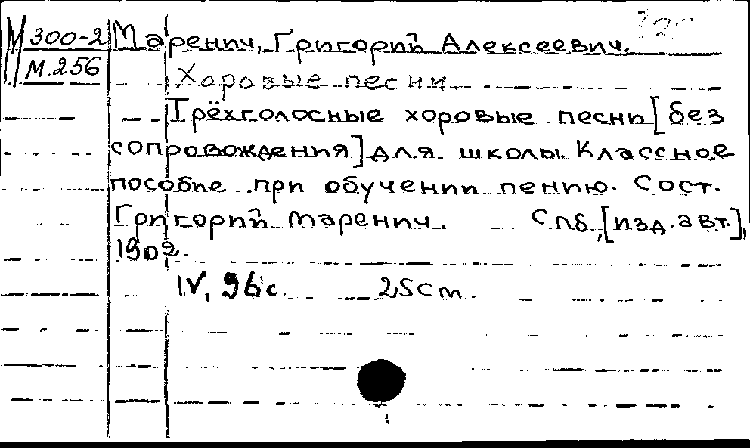 М 300-2 Маренич, Григорий Алексеевич.
М.256
Хоровые песни
Трёхголосные хоровые песни [без
сопровождения] для школы. Классное
пособие при обучении пению. Сост.
Григорий Маренич. Спб., [изд. авт.],
1902.
IV, 96 с. 25 см.